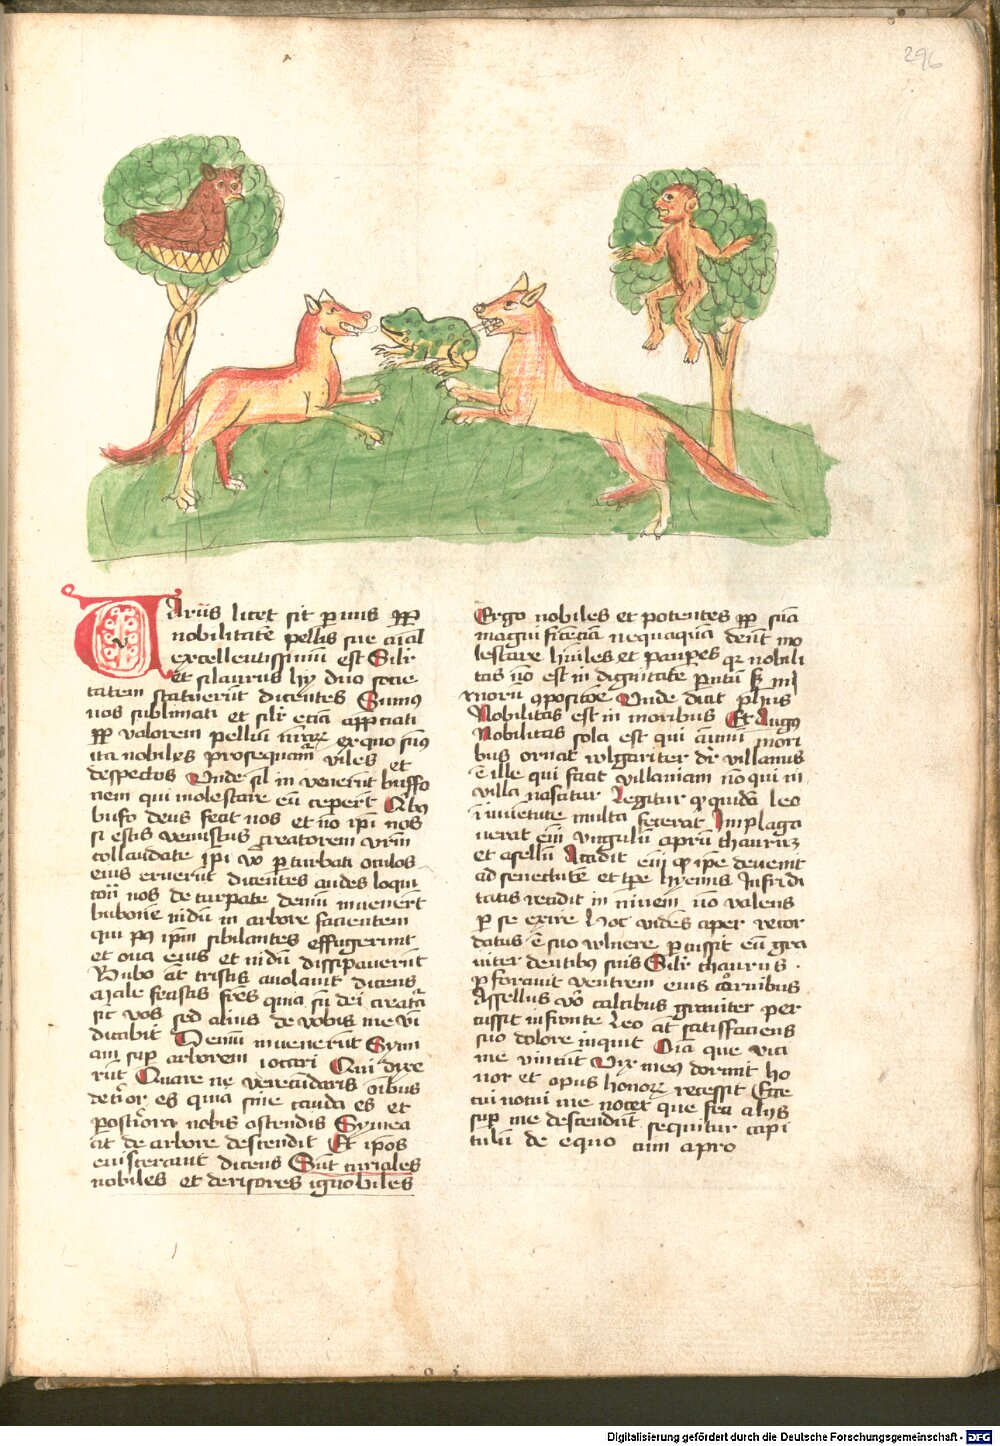 296
Varius licet sit parvus ꝓpt
nobilitatē pellis sue aīal
excellentissimū est Silr
et silaurus hy duo socie
tatem statuerūt dicentes Sumus
nos sublimati et silr etiā app̄ciati
ꝓp valorem pellium nr̄arꝝ ex quo sumꝰ
ita nobiles prosequamr̄ viles et
despectos Unde sīl in venerūt buffo
nem qui molestare eū ceperūt Qībꝰ
bufo deus fecit nos et nō ip̄i nos
si estis venustus creatorem vr̄m
collaudate ip̄i vō ꝑturbati oculos
eius eruerūt dicentes audes loqui
nos de turpate demū invenerūt
bubonē nidū in arbore facientem
qui pꝰ ip̄m sibilantes effugerunt
et oua eius et nidū dissipauerūt
Bubo at̄ tristis auolauit dicens
Male fecistis fr̄es quia sū dei creat̄a
sic vos sed alius de vobis me vī
dicabit Demū invenerūt Symi
am suꝑ arborem iocari Cui dixe
rūt Quare nō verecūdaris oībus
det̄ior es quia sine cauda es et
posteriora nobis ostendis Symea
at̄ de arbore descendit Et ip̄os
euiscerauit dicens Sunt curiales
nobiles et derisores ignobiles
Ergo nobiles et potentes ꝓp suā
magnificētiā nequaquā debēt mo
lestare hūiles et pauperes qr̄ nobili
tas nō est in dignitate parentū sꝫ in
morū ꝯpositōe Unde dicit ph̄us
Nobilitas est in moribus Et Augꝰ
Nobilitas sola est qui aīmū mori
bus ornat vlgariter dr̄ villanus
ē ille qui facit villaniam nō qui in
villa nascitur Legitur ꝙ quidā leo
ī iuuētute multa fecerat Implaga
uerat em̄ vngulū aprū thaurū
et asellū Accidit em̄ ꝙ ip̄e deuenit
ad senectutē et tp̄e hyemis Infrīdi
tatis cecidit in niuem nō valens
ꝑ se exire Hoc vidēs aper recor
datus ē suo vlnere ꝑcussit eū gra
uiter dentibꝰ suis Silr thaurus
ꝑforauit ventrem eius cornibus
Assellus vō calcibus grauiter per
cussit in fronte Leo at̄ satisfaciens
suo dolore inquit Oīa que vici
me vincūt Vix meꝰ dormit ho
nor et opus honorꝝ recessit Ecce
cui nocui me nocet que feci aliis
suꝑ me descendūt sequitur capi
tulū de equo cum apro
Digitalisierung gefördert durch die Deutsche Forschungsgemeinschaft - DFG